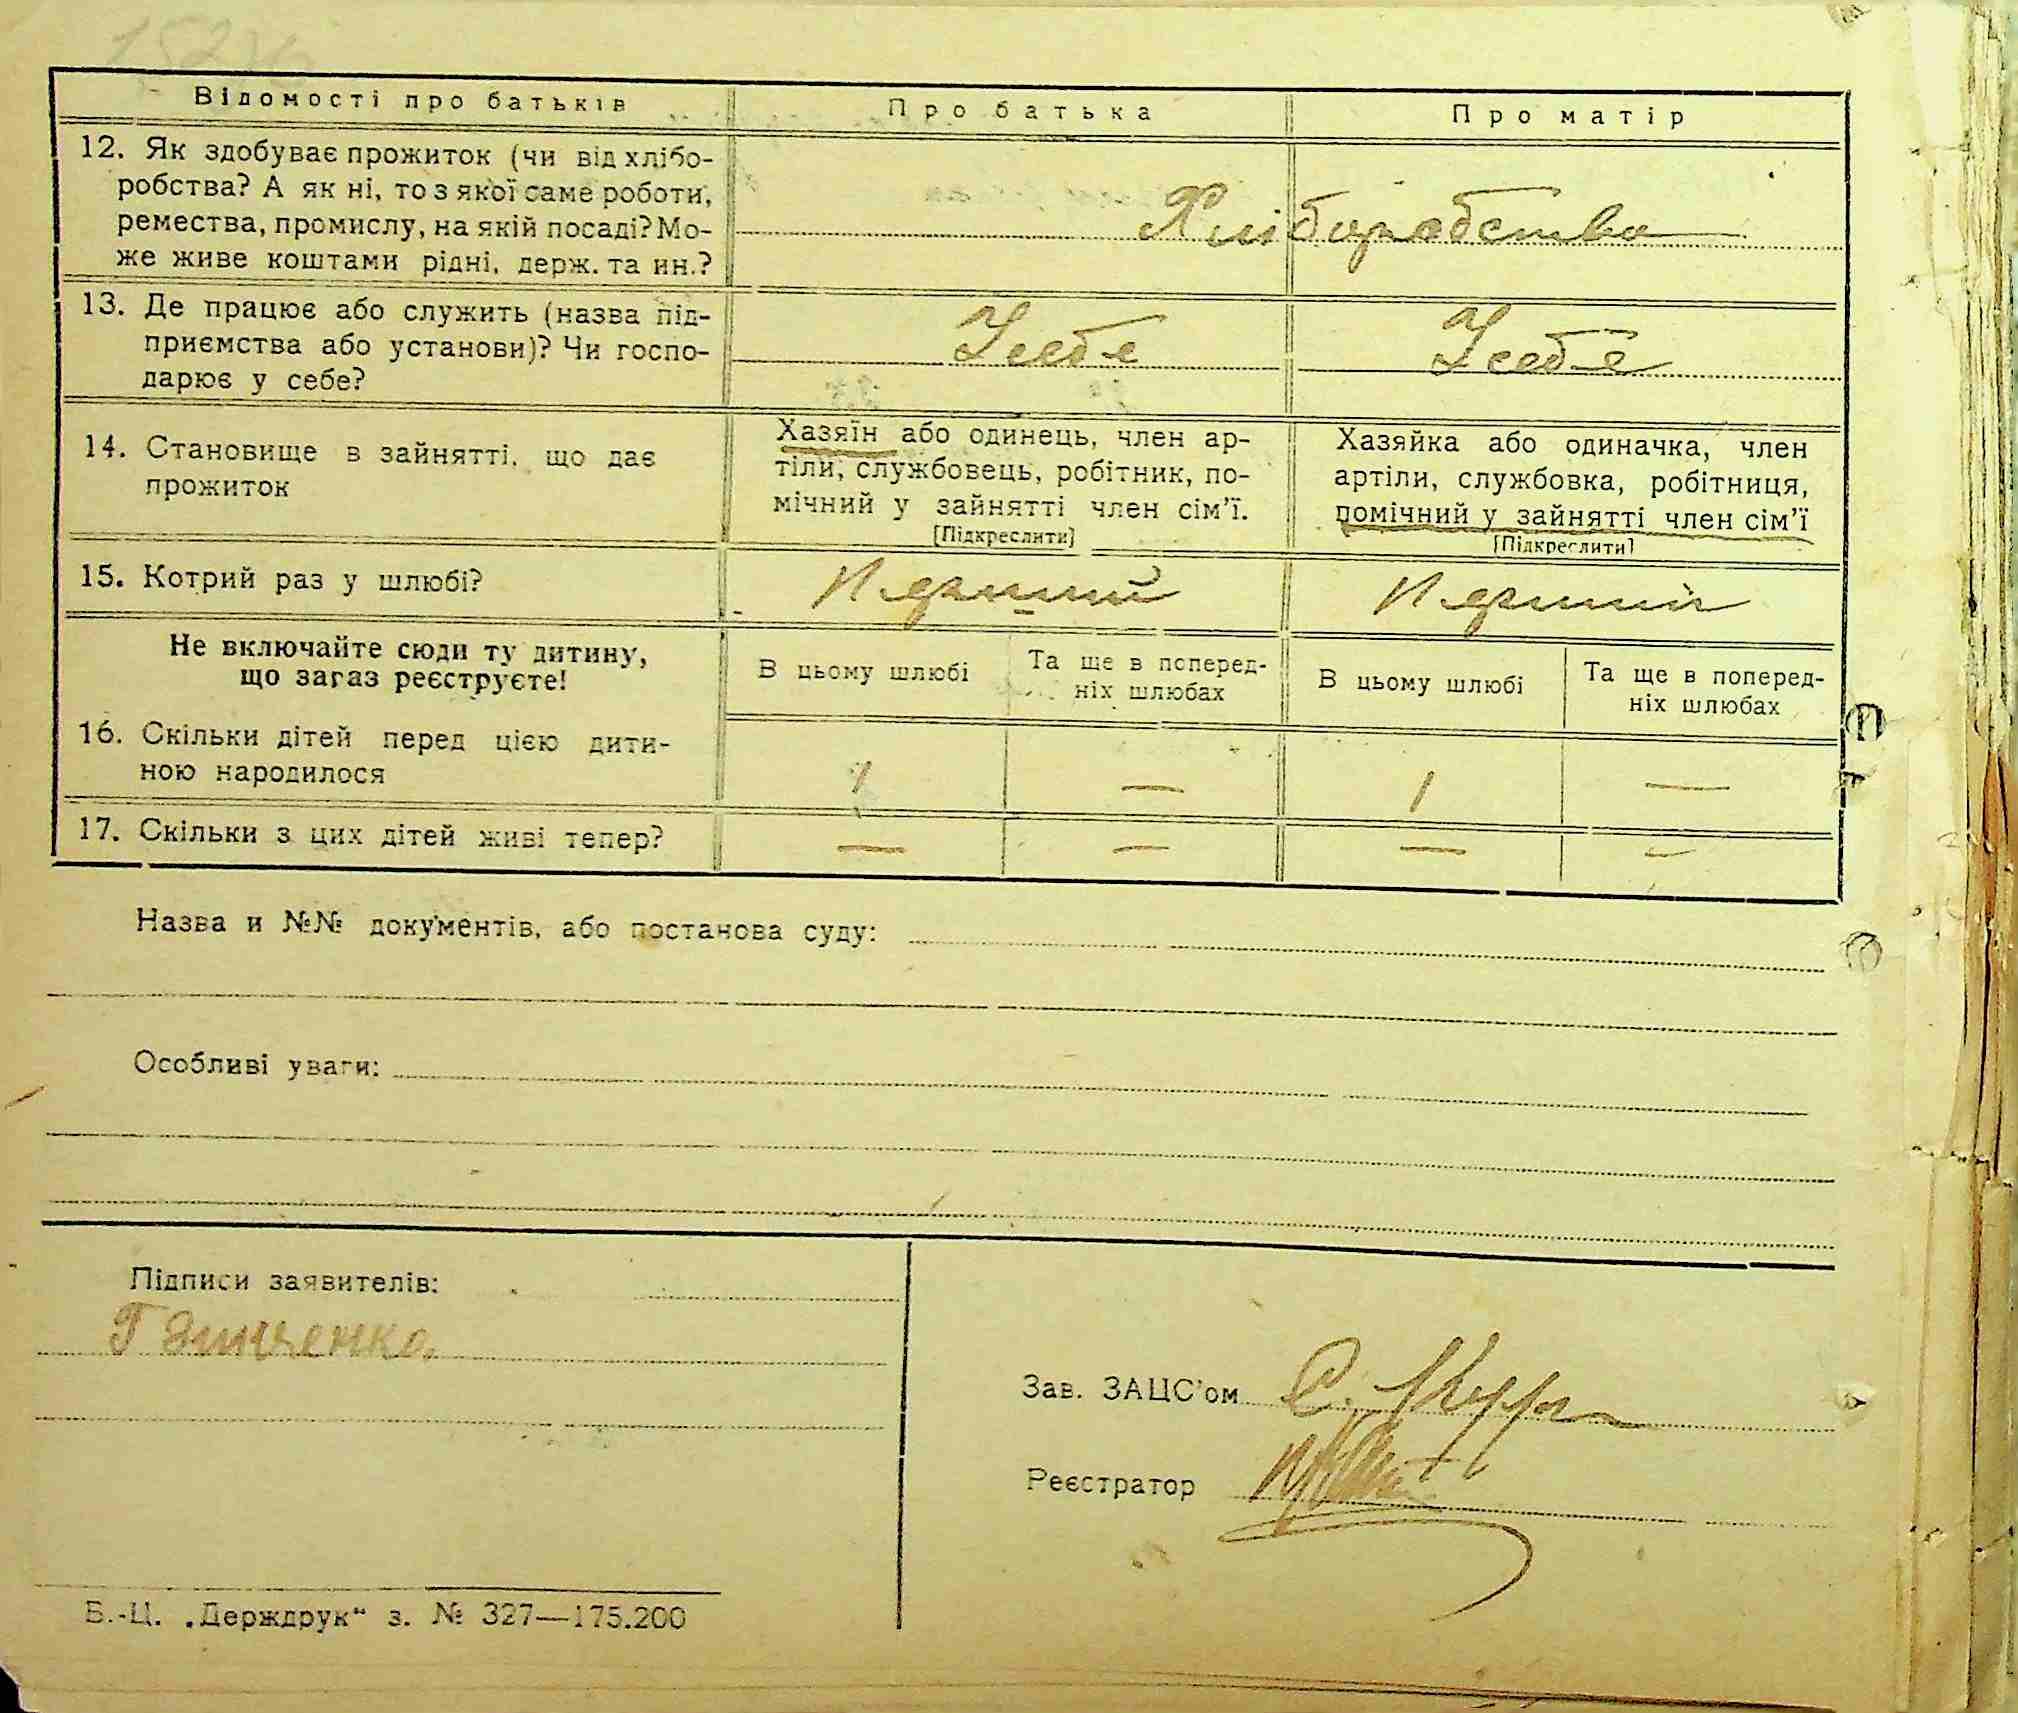 Відомості про батьків
Про батька
Про матір
12. Як здобуває прожиток (чи від хлібо-
робства? А як ні, то з якої саме роботи,
ремества, промислу, на якій посаді? Мо-
же живе коштами рідні, держ. та ин.?
Хліборобство
13. Де працює або служить (назва під-
приємства або установи)? Чи госпо-
дарює у себе?
У себе
У себе
14. Становище в зайнятті, що дає
прожиток
Хазяїн або одинець, член ар-
тіли, службовець, робітник, по-
мічний у зайнятті член сім'ї.
[Підкреслити]
Хазяйка або одиначка, член
артіли, службовка, робітниця,
помічний у зайнятті член сім'ї
[Підкреслити]
15. Котрий раз у шлюбі?
Перший
Перший
Не включайте сюди ту дитину,
що загаз реєструєте!
В цьому шлюбі
Та ще в поперед-
ніх шлюбах
В цьому шлюбі
Та ще в поперед-
ніх шлюбах
16. Скільки дітей перед цією дити-
ною народилося
1 — 1 —
17. Скільки з цих дітей живі тепер?
— — — —
Назва и №№ документів, або постанова суду:
Особливі уваги:
Підписи заявителів:
Зав. ЗАЦС'ом С.
Реєстратор
Б.-Ц. „Держдрук“ з. № 327—175.200